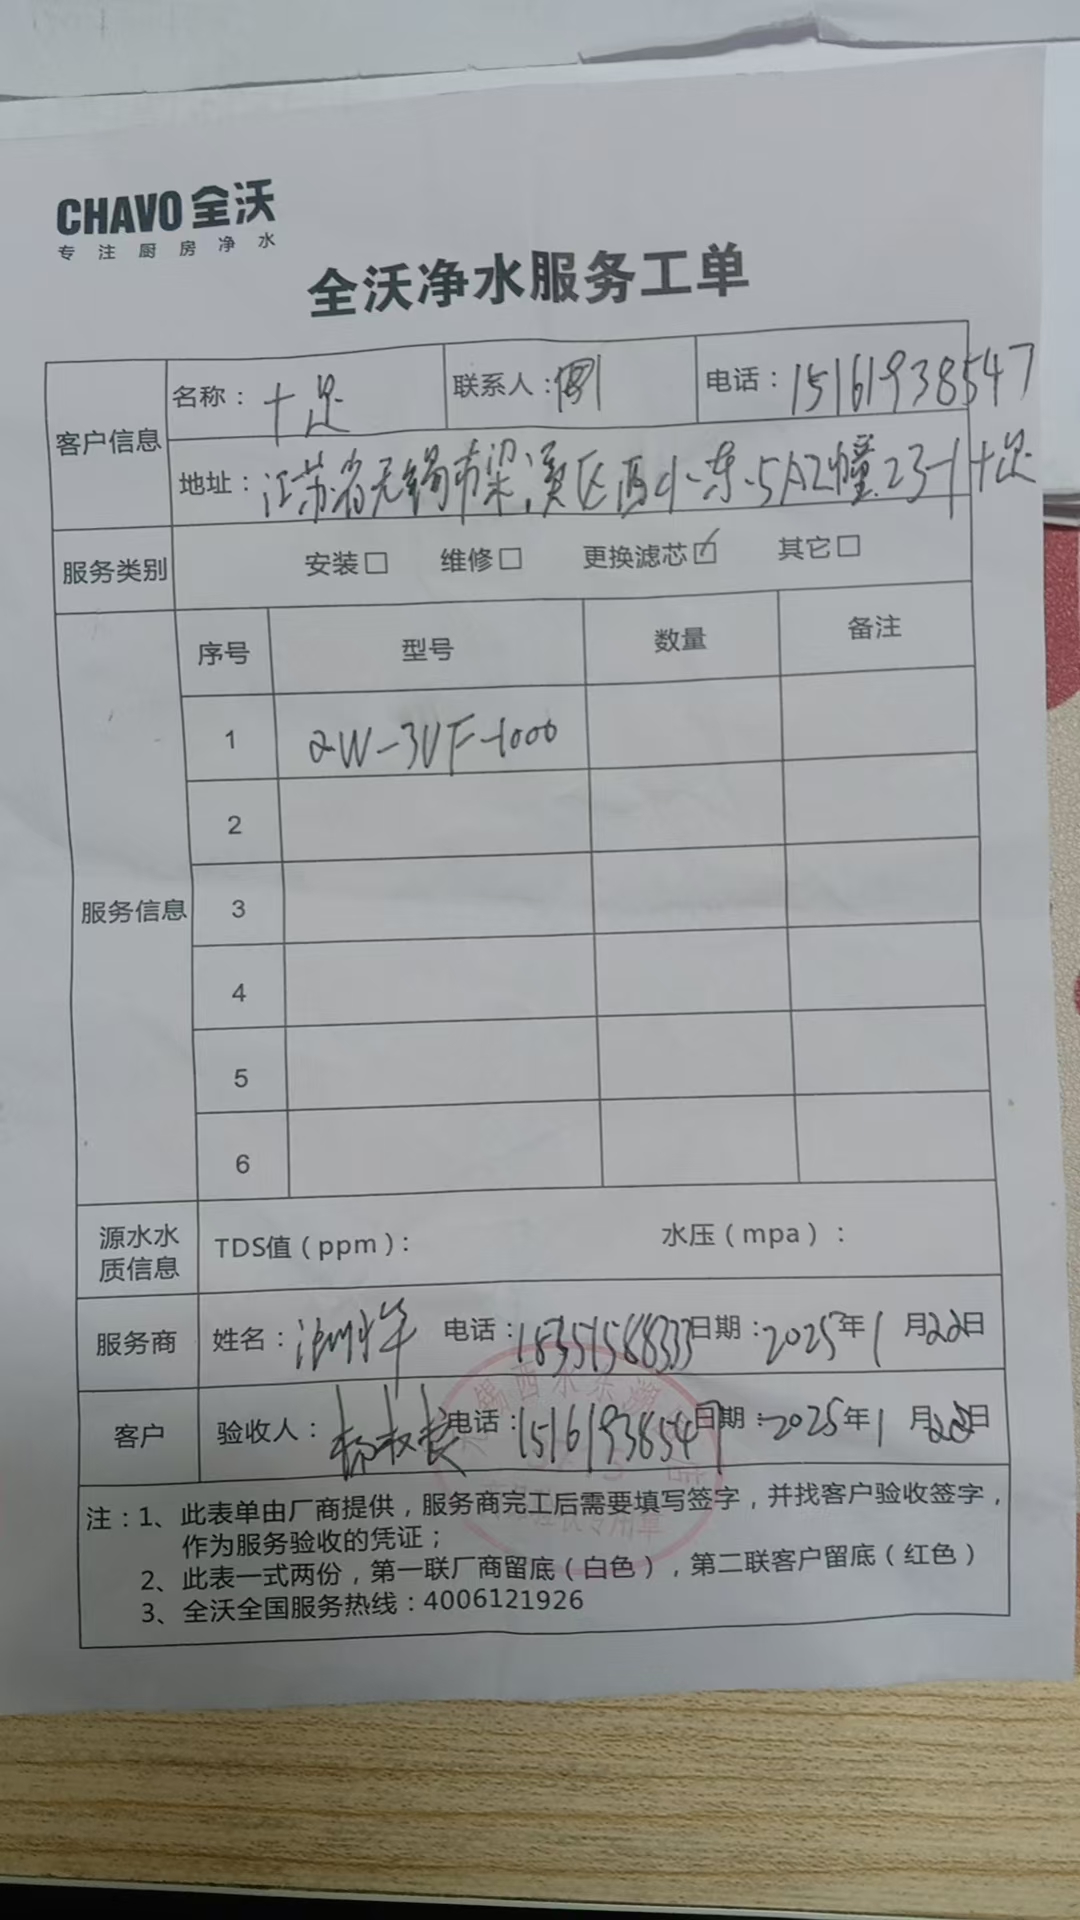 CHAVO 全沃
专注厨房净水
全沃净水服务工单
客户信息
名称： 十足 联系人： 电话：15161938547
地址：江苏省无锡市梁溪区西小东5A2幢23-1十足
服务类别 安装□ 维修□ 更换滤芯☑ 其它□
服务信息
序号 型号 数量 备注
1 QW-3UF-1000
2
3
4
5
6
源水水质信息 TDS值（ppm）： 水压（mpa）：
服务商 姓名： 电话：18351588333 日期：2025年1月22日
客户 验收人： 电话：15161938547 日期：2025年1月22日
注：1、此表单由厂商提供，服务商完工后需要填写签字，并找客户验收签字，
作为服务验收的凭证；
2、此表一式两份，第一联厂商留底（白色），第二联客户留底（红色）
3、全沃全国服务热线：4006121926